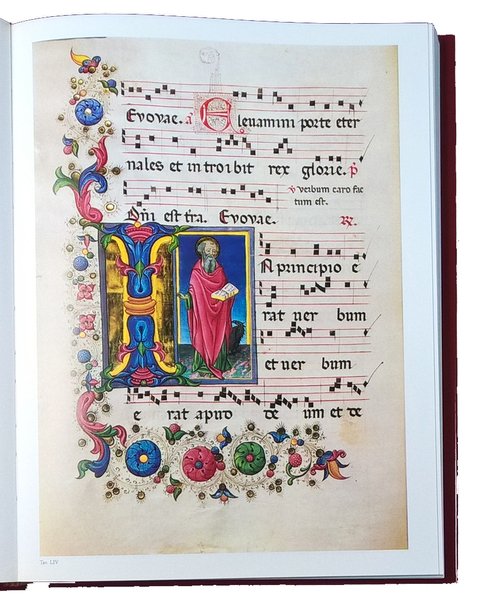 Evovae. a Elevamini porte eter
nales et introibit rex glorie. p
v verbum caro fac
tum est.
Dñi est tra. Evovae. R.
IN principio e
rat uer bum
et uer bum
e rat apud de um et de
Tav. LIV